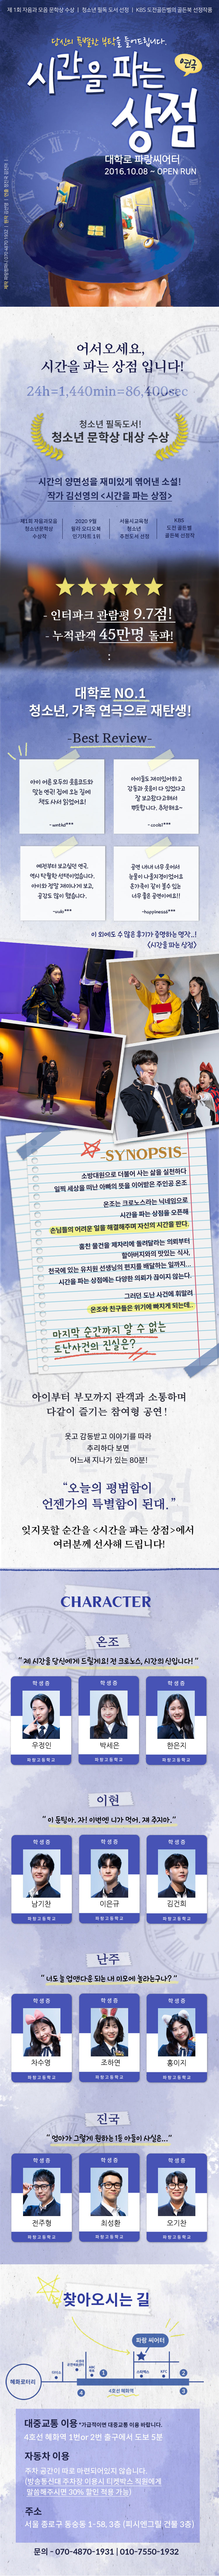 제 1회 자음과 모음 문학상 수상 | 청소년 필독 도서 선정 | KBS 도전골든벨의 골든북 선정작품
당신의 특별한 부탁을 들어드립니다.
시간을 파는
연극
상점
대학로 파랑씨어터
2016.10.08 ~ OPEN RUN
어서오세요,
시간을 파는 상점 입니다!
24h=1,440min=86,400sec
청소년 필독도서!
청소년 문학상 대상 수상
시간의 양면성을 재미있게 엮어낸 소설!
작가 김선영의 <시간을 파는 상점>
제1회 자음과모음
청소년문학상
수상작
2020 9월
윌라 오디오북
인기차트 1위
서울시교육청
청소년
추천도서 선정
KBS
도전 골든벨
골든북 선정작
- 인터파크 관람평 9.7점!
- 누적관객 45만명 돌파!
대학로 NO.1
청소년, 가족 연극으로 재탄생!
-Best Review-
아이 어른 모두의 웃음코드와
맞는 연극! 집에 오는 길에
책도 사서 읽었어요!
아이들도 재미있어하고
감동과 웃음이 다 있었다고
잘 보고왔다고해서
뿌듯합니다. 추천해요~
예전부터 보고싶던 연극,
역시 탁월한 선택이었습니다.
아이와 정말 재미나게 보고,
공감도 많이 했습니다.
공연 내내 너무 웃어서
눈물이 나올지경이었어요
온가족이 같이 볼수 있는
너무 좋은 공연이에요!!
-happiness6***
이 외에도 수많은 후기가 증명하는 명작..!
<시간을 파는 상점>
-SYNOPSIS-
소방대원으로 더불어 사는 삶을 실천하다
일찍 세상을 떠난 아빠의 뜻을 이어받은 주인공 온조
온조는 크로노스라는 닉네임으로
시간을 파는 상점을 오픈해
손님들의 어려운 일을 해결해주며 자신의 시간을 판다.
훔친 물건을 제자리에 돌려달라는 의뢰부터
할아버지와의 맛있는 식사,
천국에 있는 유치원 선생님의 편지를 배달하는 일까지...
시간을 파는 상점에는 다양한 의뢰가 끊이지 않는다.
그러던 도난 사건에 휘말려
온조와 친구들은 위기에 빠지게 되는데..
마지막 순간까지 알 수 없는
도난사건의 진실은?
아이부터 부모까지 관객과 소통하며
다같이 즐기는 참여형 공연!
웃고 감동받고 이야기를 따라
추리하다 보면
어느새 지나가 있는 80분!
“오늘의 평범함이
언젠가의 특별함이 된대.”
잊지못할 순간을 <시간을 파는 상점>에서
여러분께 선사해 드립니다!
CHARACTER
온조
“ 제 시간을 당신에게 드릴게요! 전 크로노스, 시간의 신입니다! ”
학 생 증
학 생 증
학 생 증
우정인
박세은
한은지
파랑고등학교
파랑고등학교
파랑고등학교
이현
“ 이 둔팅아. 자! 이번엔 니가 먹어. 쟤 주지마. ”
학 생 증
학 생 증
학 생 증
남기찬
이은규
김건희
파랑고등학교
파랑고등학교
파랑고등학교
난주
“ 너도 늘 업앤다운 되는 내 미모에 놀라는구나? ”
학 생 증
학 생 증
학 생 증
차수영
조하연
홍이지
파랑고등학교
파랑고등학교
파랑고등학교
진국
“ 엄마가 그렇게 원하는 1등 아들이 사실은...”
학 생 증
학 생 증
학 생 증
전주형
최성환
오기찬
파랑고등학교
파랑고등학교
파랑고등학교
찾아오시는 길
파랑 씨어터
혜화로터리
KFC
1
2
4호선 혜화역
4
3
대중교통 이용 *가급적이면 대중교통 이용 바랍니다.
4호선 혜화역 1번or 2번 출구에서 도보 5분
자동차 이용
주차 공간이 따로 마련되어있지 않습니다.
(방송통신대 주차장 이용시 티켓박스 직원에게
말씀해주시면 30% 할인 적용 가능)
주소
서울 종로구 동숭동 1-58, 3층 (피시앤그릴 건물 3층)
문의 - 070-4870-1931 | 010-7550-1932